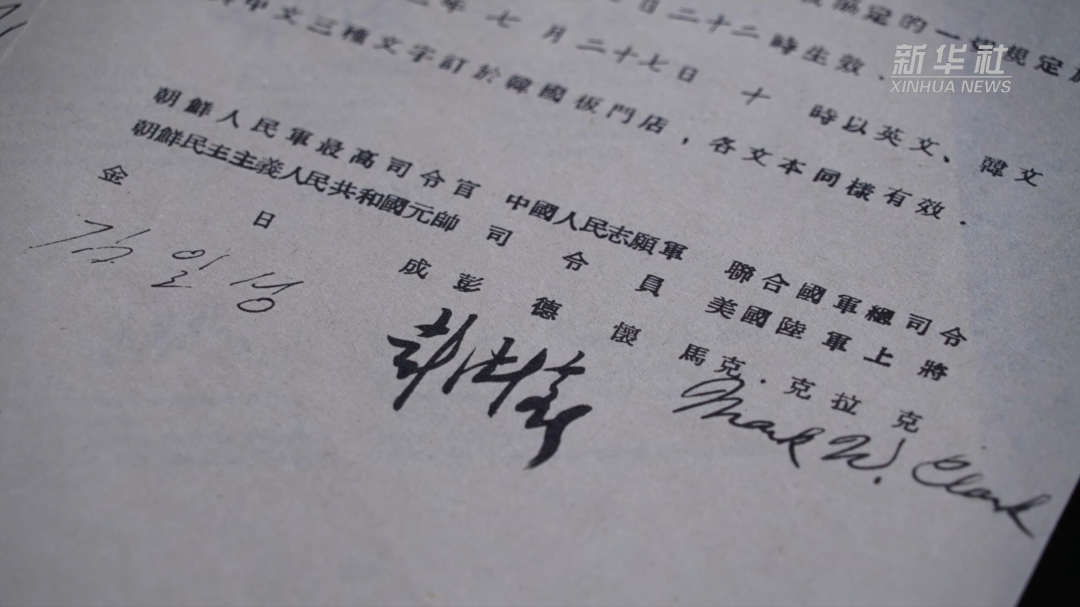 新华社
XINHUA NEWS
定的一切規定
日二十二時生效．
年七月二十七日 十 時以英文、韓文
中文三種文字訂於韓國板門店，各文本同樣有效．
朝鮮人民軍最高司令官
朝鮮民主主義人民共和國元帥
金日成
김일성
中國人民志願軍
司令員
彭德懷
彭德懷
聯合國軍總司令
美國陸軍上將
馬克·克拉克
Mark W. Clark